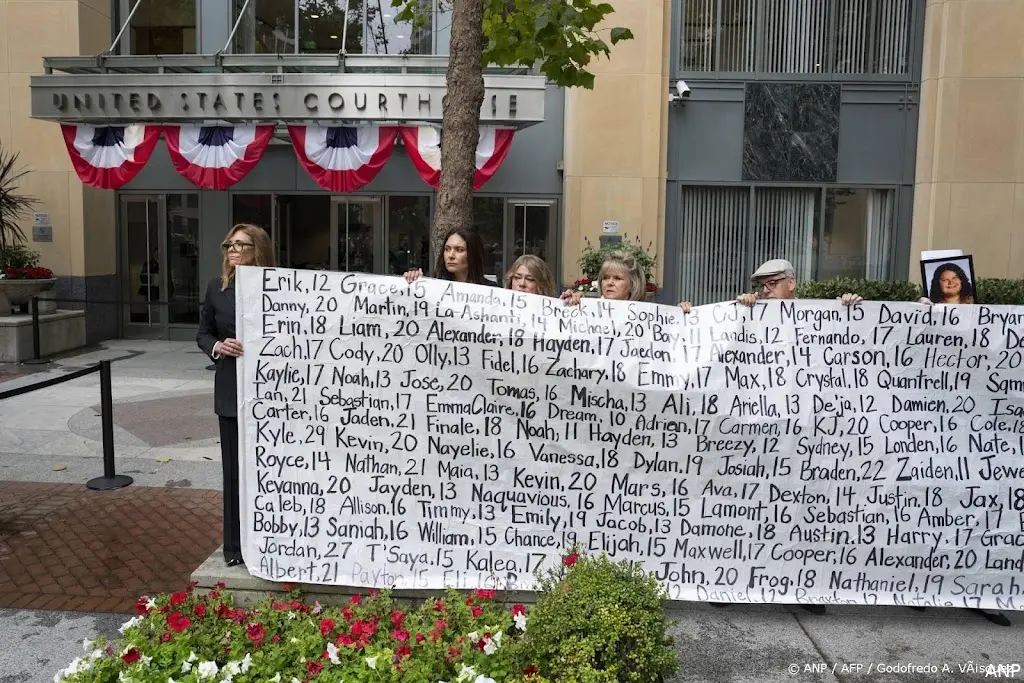 UNITED STATES COURTHOUSE
Erik, 12 Grace, 15 Amanda, 15 Breck, 14 Sophie, 13 CJ, 17 Morgan, 15 David, 16 Bryan
Danny, 20 Martin, 19 La-Ashanti, 14 Michael, 20 Bay, 11 Landis, 12 Fernando, 17 Lauren, 18
Erin, 18 Liam, 20 Alexander, 18 Hayden, 17 Jaedon, 17 Alexander, 14 Carson, 16 Hector, 20
Zach, 17 Cody, 20 Olly, 13 Fidel, 16 Zachary, 18 Emmy, 17 Max, 18 Crystal, 18 Quantrell, 19
Kaylie, 17 Noah, 13 Jose, 20 Tomas, 16 Mischa, 13 Ali, 18 Ariella, 13 De'ja, 12 Damien, 20
Ian, 21 Sebastian, 17 EmmaClaire, 16 Dream, 10 Adrian, 17 Carmen, 16 KJ, 20 Cooper, 16 Cole, 18
Carter, 16 Jaden, 21 Finale, 18 Noah, 11 Hayden, 13 Breezy, 12 Sydney, 15 Landen, 16 Nate,
Kyle, 29 Kevin, 20 Nayelie, 16 Vanessa, 18 Dylan, 19 Josiah, 15 Braden, 22 Zaiden, 11
Royce, 14 Nathan, 21 Maia, 13 Kevin, 20 Mars, 16 Ava, 17 Dexton, 14 Justin, 18 Jax, 18
Kevanna, 20 Jayden, 13 Naquavious, 16 Marcus, 15 Lamont, 16 Sebastian, 16 Amber, 17
Caleb, 18 Allison, 16 Timmy, 13 Emily, 19 Jacob, 13 Damone, 18 Austin, 13 Harry, 17
Bobby, 13 Saniah, 16 William, 15 Chance, 19 Elijah, 15 Maxwell, 17 Cooper, 16 Alexander, 20
Jordan, 27 T'Saya, 15 Kalea, 17 John, 20 Frog, 18 Nathaniel, 19 Sarah
Albert, 21 Payton, 15 Eli, 16 Daniel, 12 Braxton, 12 Natalie, 17
© ANP / AFP / Godofredo A. VÃisquez
ANP